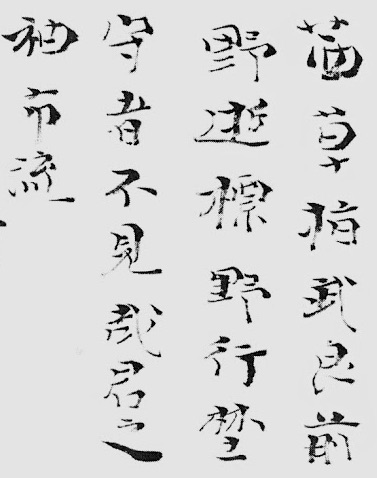 茜草指武良前
野逝標野行埜
守者不見哉君之
袖布流